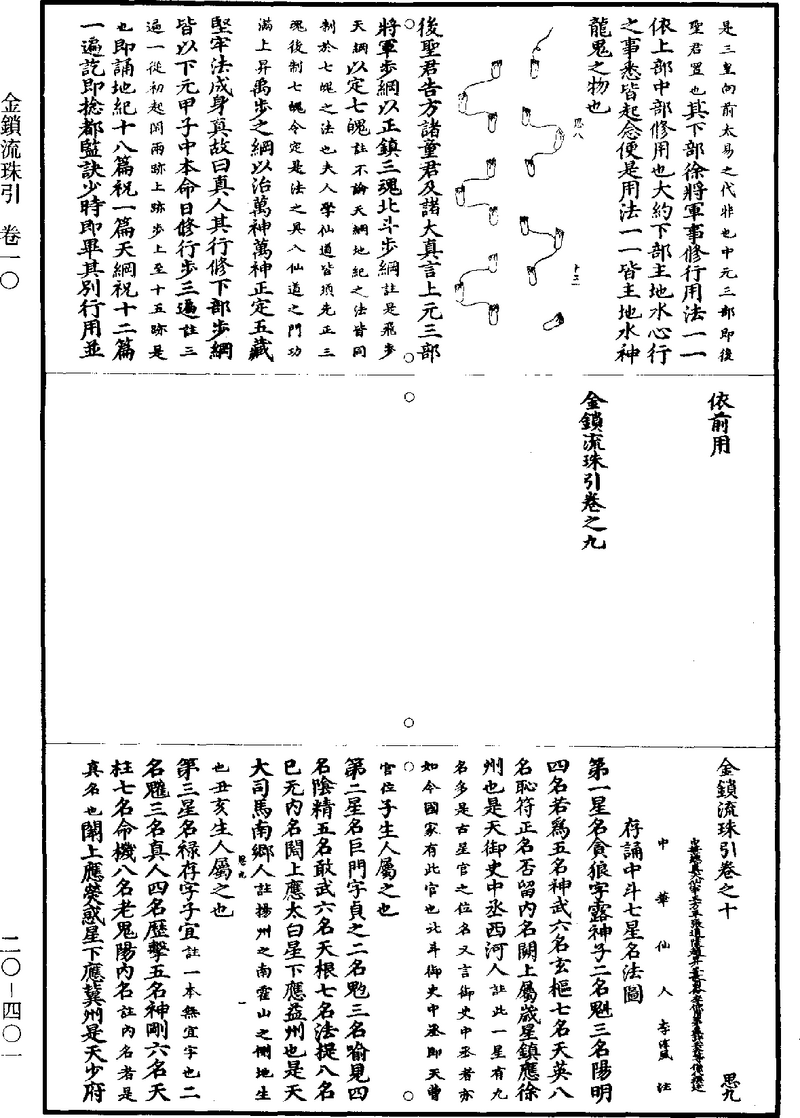 是三皇向前太易之代非也中元三部即後
聖君置也其下部徐將軍事修行用法一一
依上部中部修用也大約下部主地水心行
之事悉皆起念便是用法一一皆主地水神
龍鬼之物也
思八
十三
後聖君告方諸童君及諸大真言上元三部
將軍步綱以正鎮三魂北斗步綱註是飛步
天綱以定七魄註不論天綱地紀之法皆同
制於七魄之法也夫人學仙道皆須先正三
魂後制七魄令定是法之具入仙道之門功
滿上昇萬步之綱以治萬神萬神正定五藏
堅牢法成身真故曰真人其行修下部步綱
皆以下元甲子中本命日修行步三遍註三
遍一從初起閉兩跡上跡步上至十五跡是
也即誦地紀十八篇祝一篇天綱祝十二篇
一遍訖即捻都監訣少時即畢其別行用並
依前用
金鎖流珠引卷之九
金鎖流珠引卷之十
思九
中華仙人李淳風註
存誦中斗七星名法圖
第一星名貪狼字露神子二名魁三名陽明
四名若為五名神武六名玄樞七名天英八
名恥符正名否留內名闕上屬歲星鎮應徐
州也是天御史中丞西河人註此一星有九
名多是古星官之位名又言御史中丞者亦
如今國家有此官也北斗御史中丞即天曹
官位子生人屬之也
第二星名巨門字貞之二名魁三名喻見四
名陰精五名敢武六名天根七名法提八名
巳无內名閻上應太白星下應益州也是天
大司馬南鄉人註揚州之南霍山之側地生
也丑亥生人屬之也
思九
一
第三星名祿存字子宜註一本無宜字也二
名䰢三名真人四名歷擊五名神剛六名天
柱七名命機八名老鬼陽內名註內名者是
真名也闡上應熒惑星下應冀州是天少府
金鎖流珠引 卷一〇
二〇-四〇一